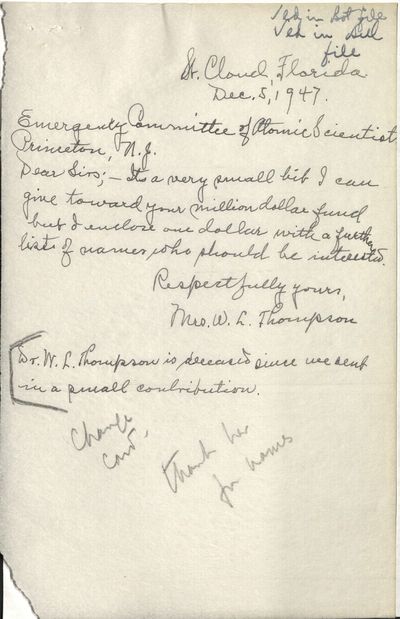 ✓ed in
file
✓ed in
file
St. Cloud, Florida
Dec. 5, 1947.
Emergency Committee of Atomic Scientist
Princeton, N.J.
Dear Sirs; – Its a very small bit I can
give toward your million dollar fund
but I enclose one dollar with a further
lists of names who should be interested.
Respectfully yours,
Mrs. W. L. Thompson
Dr. W. L. Thompson is deceas'd since we sent
in a small contribution.
Change
card.
Thank her
for names